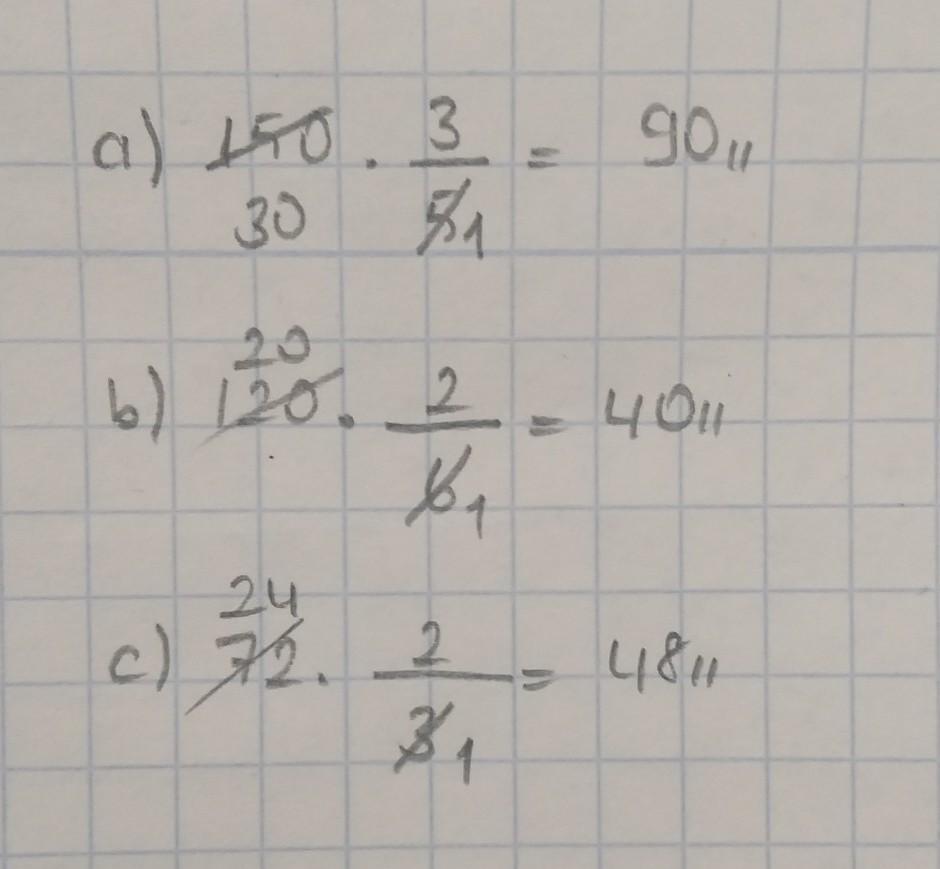 a) 150 · 3/5 1 = 90"
30
20
b) 120 · 2/6 1 = 40"
24
c) 72 · 2/3 1 = 48"